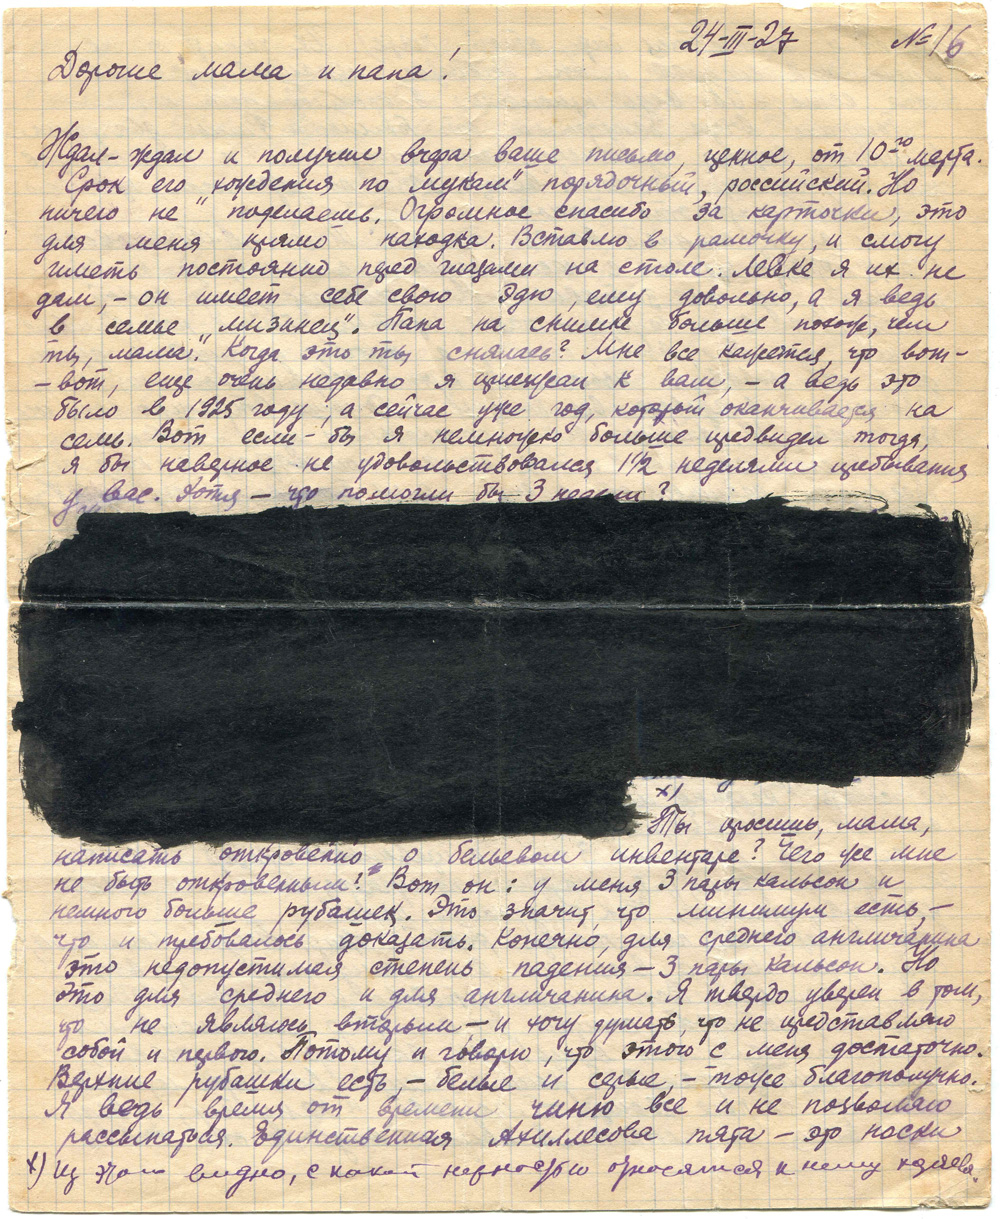 24-III-27 № 16
Дорогие мама и папа!
Ждал-ждал и получил вчера ваше письмо, ценное, от 10го марта.
Срок его „хождения по мукам" порядочный, российский. Но
ничего не поделаешь. Огромное спасибо за карточки, это
для меня прямо находка. Вставлю в рамочку, и смогу
иметь постоянно перед глазами на столе. Левке я их не
дам, – он имеет себе свою Эдю, ему довольно, а я ведь
в семье „мизинец". Папа на снимке больше похож, чем
ты, мама. Когда это ты снялась? Мне все кажется, что вот-
-вот, еще очень недавно я приезжал к вам, – а ведь это
было в 1925 году; а сейчас уже год, который оканчивается на
семь. Вот если-бы я немножко больше предвидел тогда,
я бы наверное не удовольствовался 1½ неделями пребывания
у вас. Хотя – что помогли бы 3 недели?
х)
Ты просишь, мама,
написать откровенно о бельевом инвентаре? Чего же мне
не быть откровенным? Вот он: у меня 3 пары кальсон и
немного больше рубашек. Это значит, что минимум есть, –
что и требовалось доказать. Конечно, для среднего англичанина
это недопустимая степень падения – 3 пары кальсон. Но
это для среднего и для англичанина. Я твердо уверен в том,
что не являюсь вторым – и хочу думать, что не представляю
собой и первого. Потому и говорю, что этого с меня достаточно.
Верхние рубашки есть, – белые и серые, – тоже благополучно.
Я ведь время от времени чиню все и не позволяю
рассыпаться. Единственная Ахиллесова пята – это носки
х) Из этого видно, с какой нежностью относятся к нему